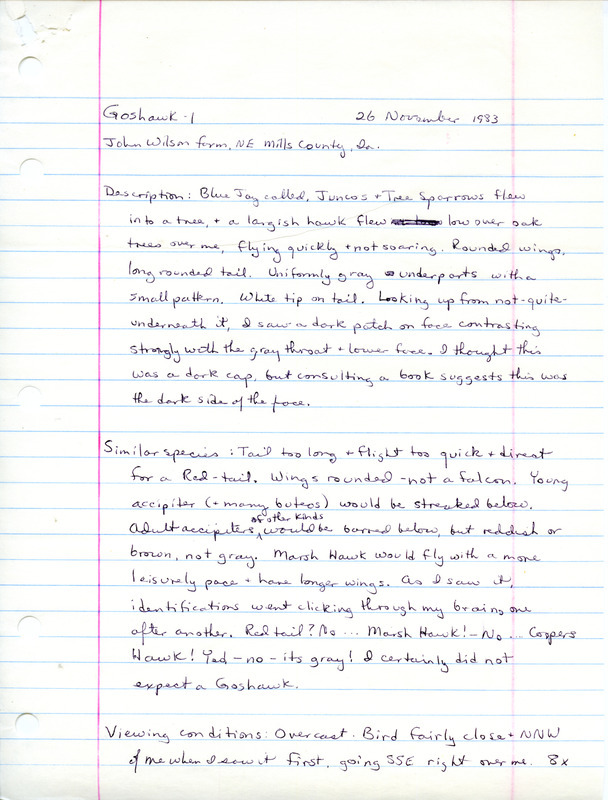 Goshawk - 1 26 November 1983
John Wilson farm, NE Mills County, Ia.
Description: Blue Jay called, Juncos + Tree Sparrows flew
into a tree, + a largish hawk flew low over oak
trees over me, flying quickly + not soaring. Rounded wings,
long rounded tail. Uniformly gray underparts with a
small pattern. White tip on tail. Looking up from not-quite-
underneath it, I saw a dark patch on face contrasting
strongly with the gray throat + lower face. I thought this
was a dark cap, but consulting a book suggests this was
the dark side of the face.
Similar species: Tail too long + flight too quick + direct
for a Red-tail. Wings rounded - not a falcon. Young
accipiter (+ many buteos) would be streaked below.
of other kinds
Adult accipiters, would be barred below, but reddish or
brown, not gray. Marsh Hawk would fly with a more
leisurely pace + have longer wings. As I saw it,
identifications went clicking through my brain, one
after another. Red tail? No ... Marsh Hawk! - No ... Coopers
Hawk! Yed - no - its gray! I certainly did not
expect a Goshawk.
Viewing conditions: Overcast. Bird fairly close + NNW
of me when I saw it first, going SSE right over me. 8x